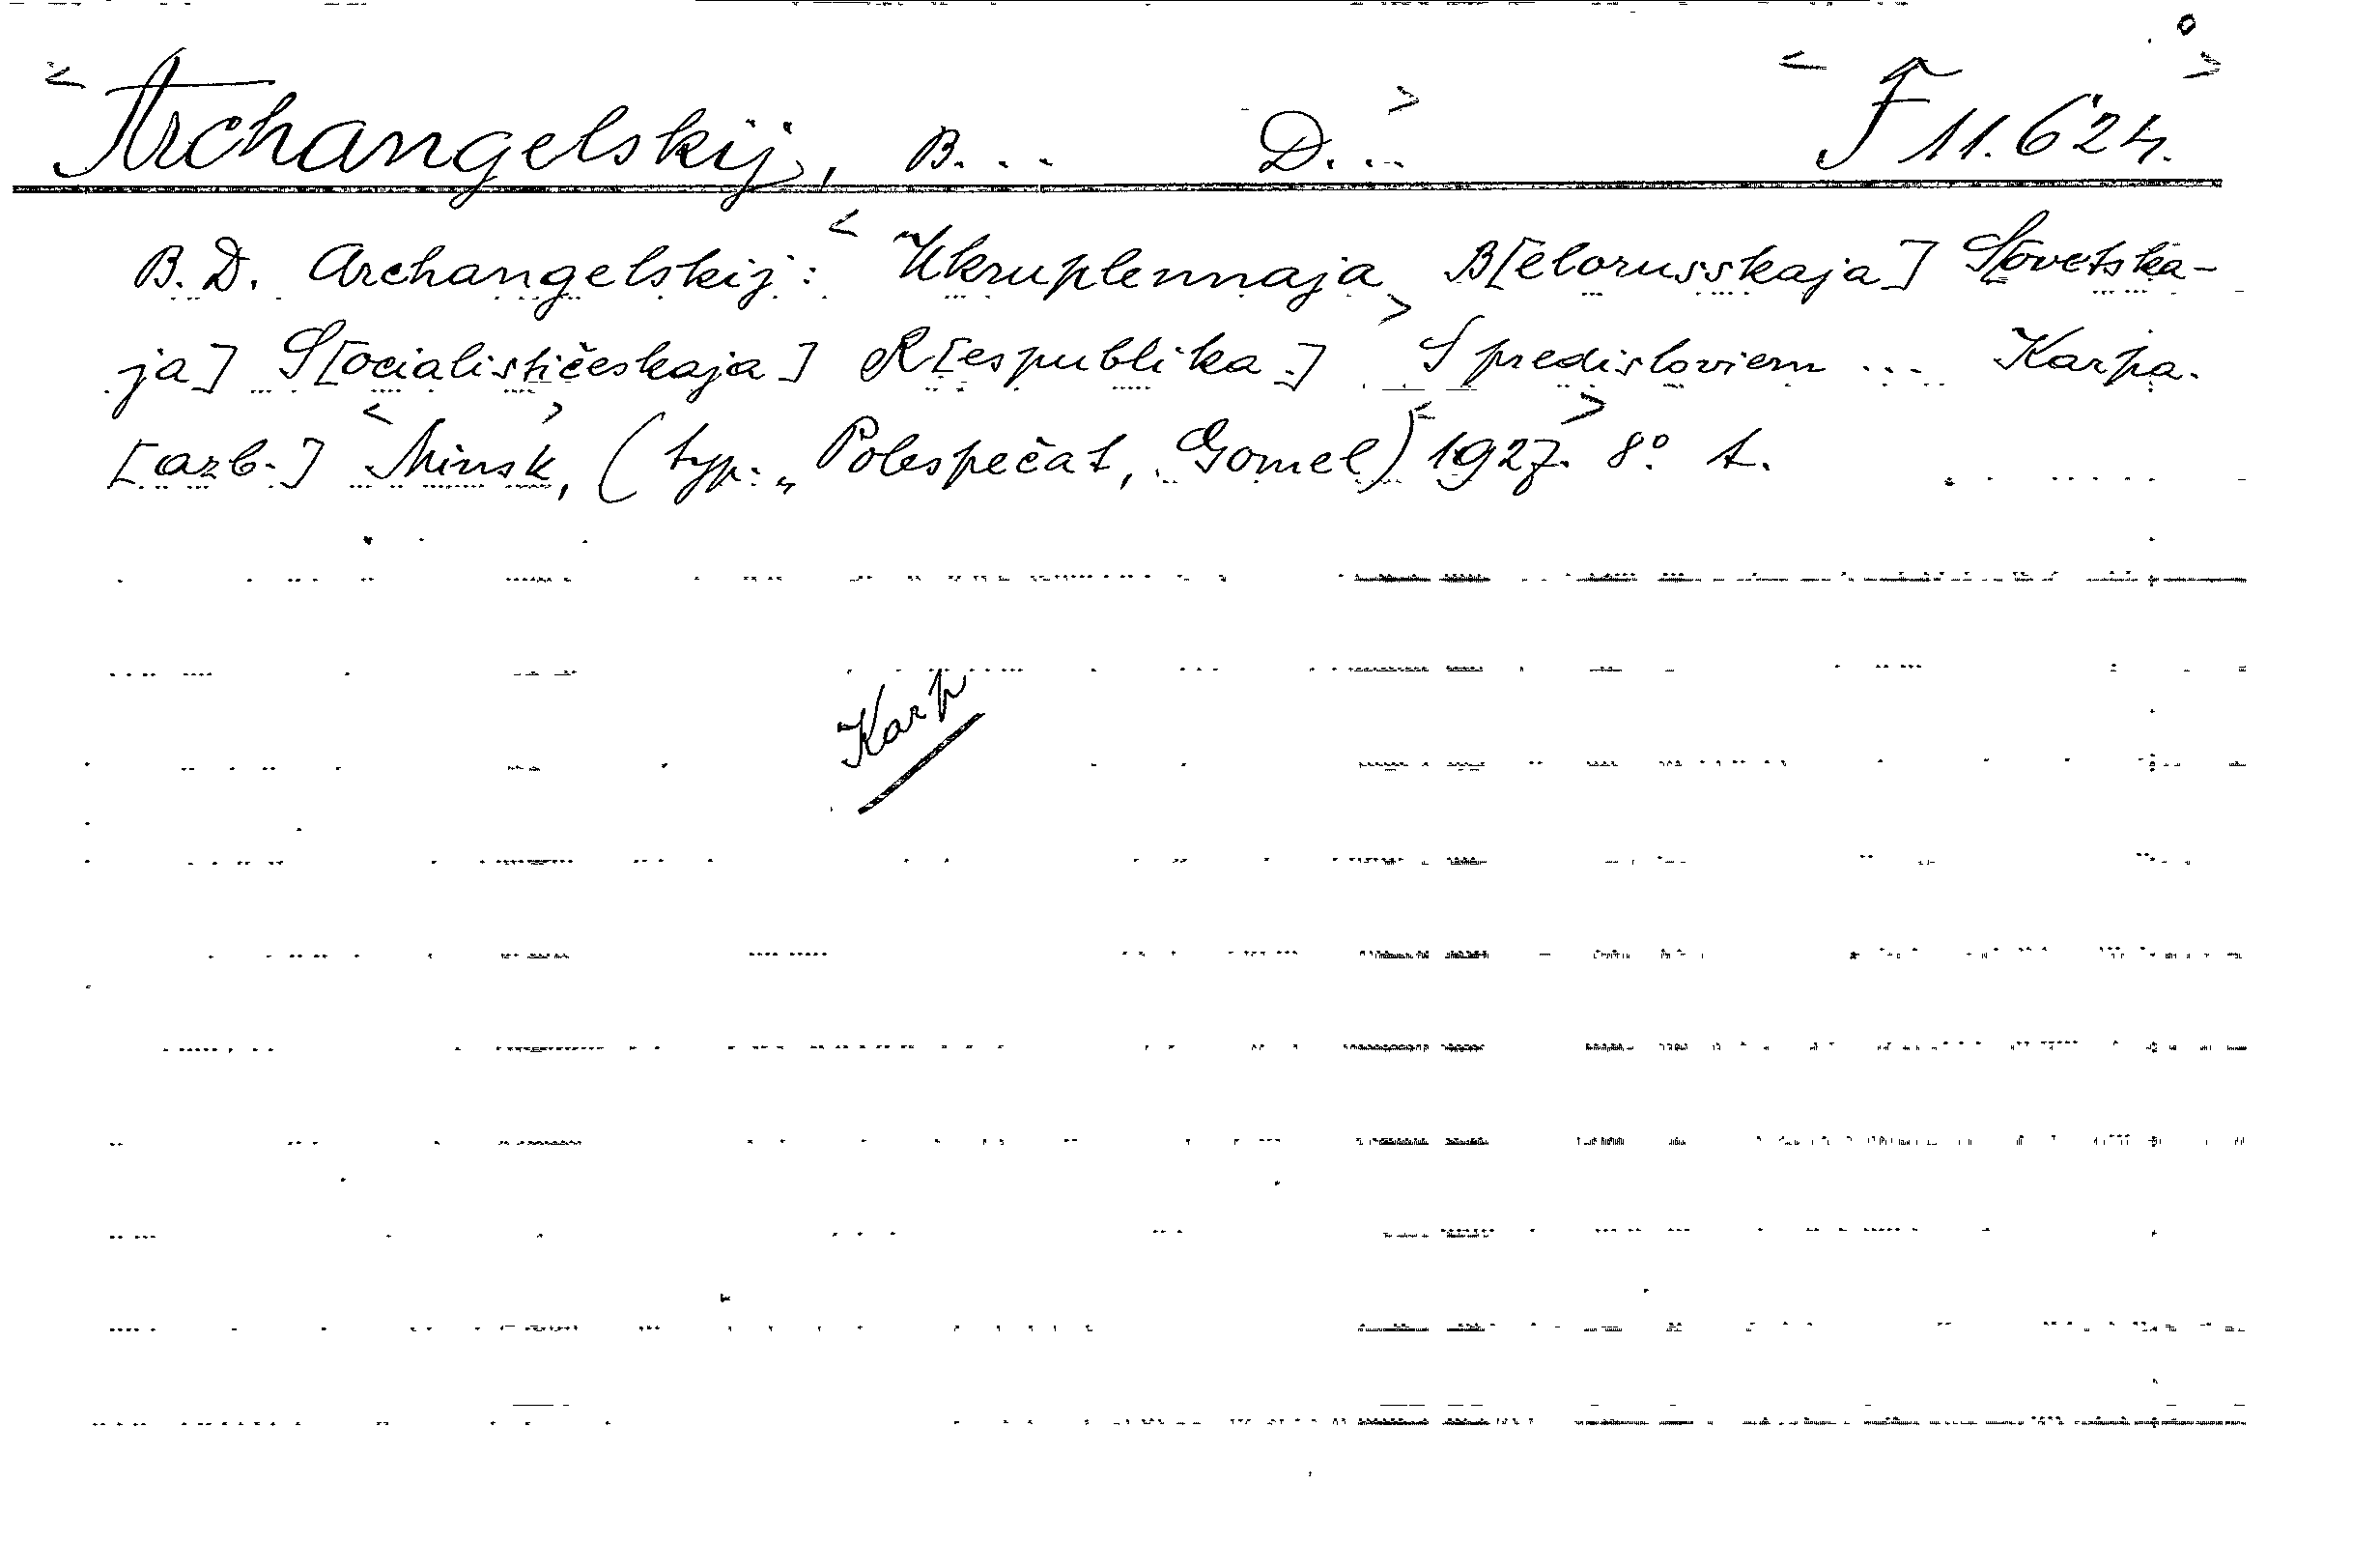 <Archangelskij, B... D...> <F 11.624.>
B.D. Archangelskij: <Ukruplennaja B[elorusskaja] S[ovetska-
ja] S[ocialističeskaja] R[espublika.]> S predisloviem ... Karpa.
[azb.] <Minsk>, (typ. „Polespečat, Gomel) <1927.> 8° t.
Karp